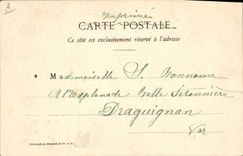 A
Imprimé
CARTE POSTALE
Ce côté est exclusivement réservé à l'adresse
Mademoiselle S. Bonnome
à l'Esplanade Belle
Draguignan
Var